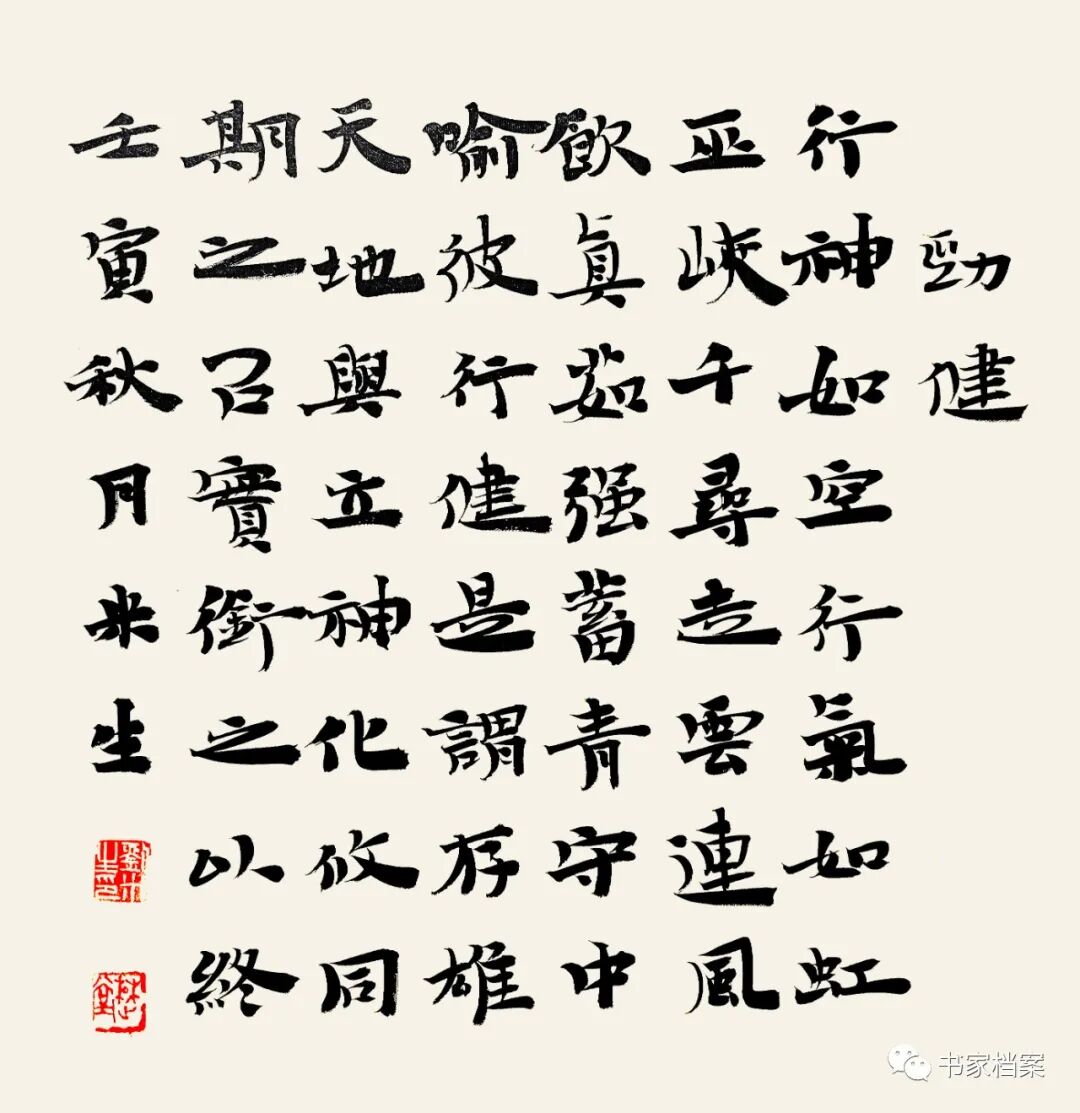 勁健
行神如空行氣如虹
巫峽千尋走雲連風
飲真茹强蓄青守中
喻彼行健是謂存雄
天地與立神化攸同
期之召實銜之以終
壬寅秋月米生
书家档案